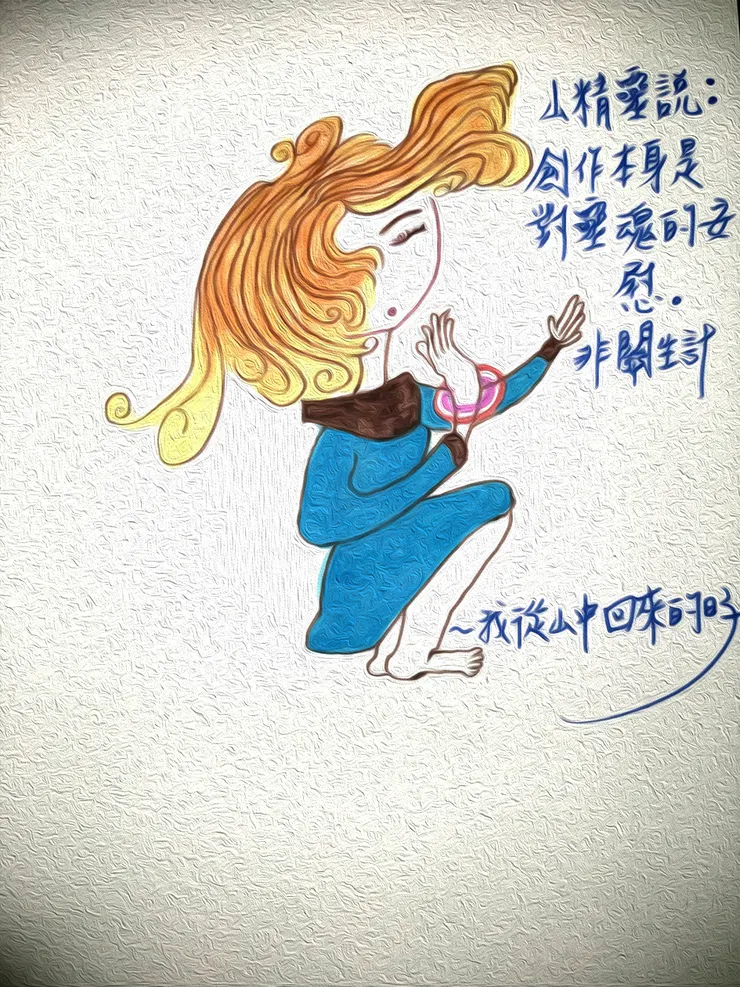 山精靈說：
創作本身是
對靈魂的安
慰。
非關生計
~我從山中回來的日子